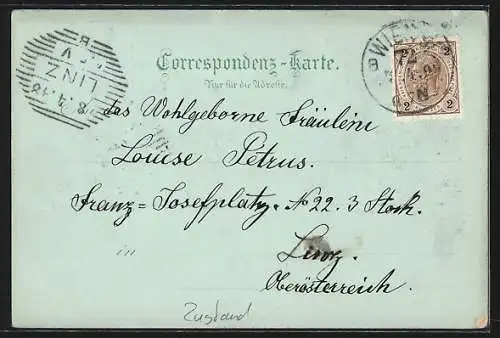 Correspondenz-Karte.
Nur für die Adresse.
WIEN
72
2 2
B
LINZ
8.4.98
das Wohlgeborne Fräulein
Louise Petrus.
Franz=Josefplatz. No 22. 3 Stock.
in Linz.
Oberösterreich.